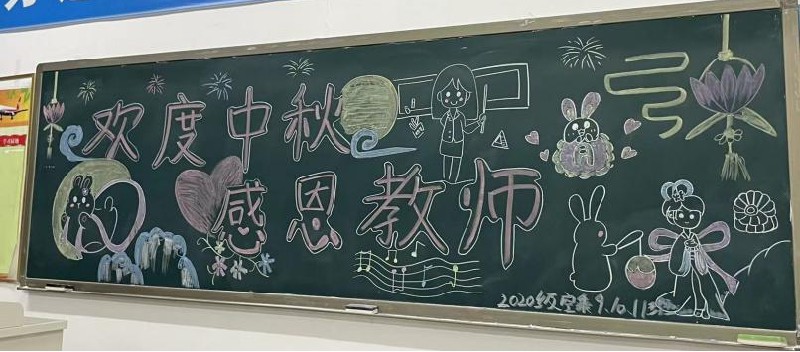 欢度中秋
感恩教师
2020级空乘9.10.11班